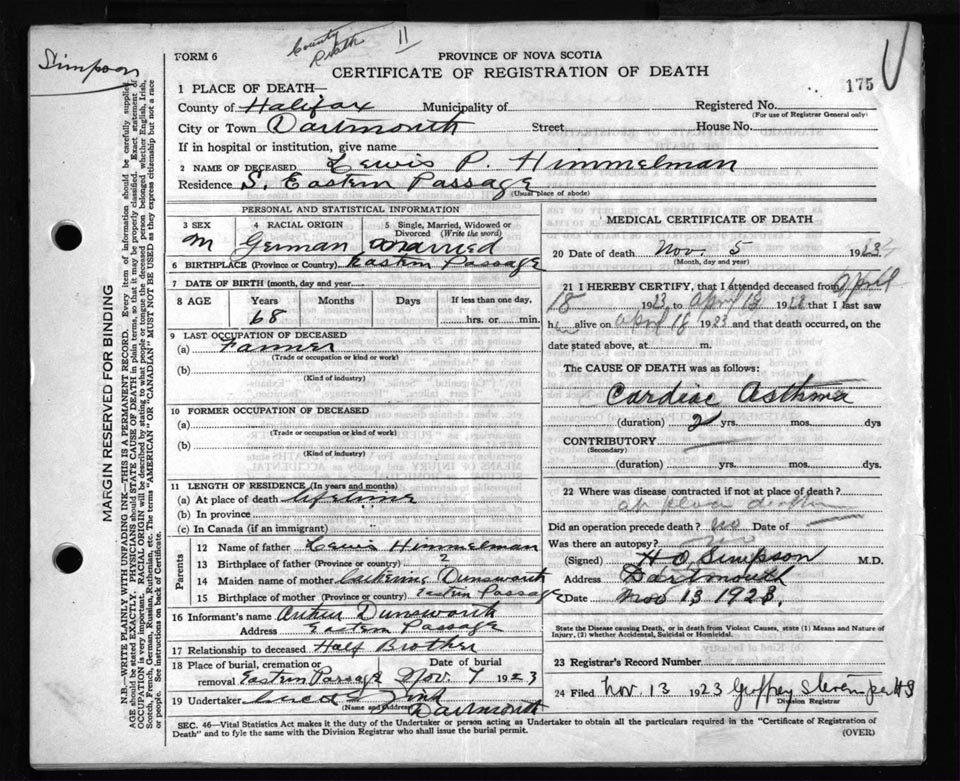 Simpson
County
Death
11
FORM 6
PROVINCE OF NOVA SCOTIA
CERTIFICATE OF REGISTRATION OF DEATH
175
1 PLACE OF DEATH—
County of Halifax Municipality of Registered No.
(For use of Registrar General only)
City or Town Dartmouth Street House No.
If in hospital or institution, give name
2 NAME OF DECEASED Lewis P. Himmelman
Residence S. Eastern Passage
(Usual place of abode)
PERSONAL AND STATISTICAL INFORMATION
3 SEX 4 RACIAL ORIGIN 5 Single, Married, Widowed or Divorced (Write the word)
M German Married
6 BIRTHPLACE (Province or Country) Eastern Passage
7 DATE OF BIRTH (month, day and year)
8 AGE Years Months Days If less than one day,
68 hrs. or min.
9 LAST OCCUPATION OF DECEASED
(a) Farmer
(Trade or occupation or kind or work)
(b)
(Kind of industry)
10 FORMER OCCUPATION OF DECEASED
(a)
(Trade or occupation or kind of work)
(b)
(Kind of industry)
11 LENGTH OF RESIDENCE (In years and months)
(a) At place of death lifetime
(b) In province
(c) In Canada (if an immigrant)
Parents
12 Name of father Lewis Himmelman
13 Birthplace of father (Province or country) ?
14 Maiden name of mother Catherine Dunsworth
15 Birthplace of mother (Province or country) Eastern Passage
16 Informant's name Arthur Dunsworth
Address Eastern Passage
17 Relationship to deceased Half Brother
18 Place of burial, cremation or removal Eastern Passage Date of burial Nov. 7 1923
19 Undertaker
(Name and Address) Dartmouth
MEDICAL CERTIFICATE OF DEATH
20 Date of death Nov. 5 1923
(Month, day and year)
21 I HEREBY CERTIFY, that I attended deceased from April
18 1923 to April 18 1923 that I last saw
him alive on April 18 1923 and that death occurred, on the
date stated above, at m.
The CAUSE OF DEATH was as follows:
Cardiac Asthma
(duration) 2 yrs. mos. dys
CONTRIBUTORY
(Secondary)
(duration) yrs. mos. dys.
22 Where was disease contracted if not at place of death?
at place death
Did an operation precede death? no Date of
Was there an autopsy? no
(Signed) H O Simpson M.D.
Address Dartmouth
Date Nov 13 1923.
State the Disease causing Death, or in death from Violent Causes, state (1) Means and Nature of
Injury, (2) whether Accidental, Suicidal or Homicidal.
23 Registrar's Record Number
24 Filed Nov. 13 1923 Geoffrey
Division Registrar
SEC. 46—Vital Statistics Act makes it the duty of the Undertaker or person acting as Undertaker to obtain all the particulars required in the "Certificate of Registration of
Death" and to fyle the same with the Division Registrar who shall issue the burial permit.
(OVER)
MARGIN RESERVED FOR BINDING
N.B.—WRITE PLAINLY WITH UNFADING INK—THIS IS A PERMANENT RECORD. Every item of information should be carefully supplied.
AGE should be stated EXACTLY. PHYSICIANS should STATE CAUSE OF DEATH in plain terms, so that it may be properly classified. Exact statement of
OCCUPATION is very important. RACIAL ORIGIN will be described by stating to what people or tongue the deceased person belonged, whether English, Irish,
Scotch, French, German, Russian, Ruthenian, etc. The terms "AMERICAN" or "CANADIAN" MUST NOT BE USED as they express citizenship but not a race
or people. See instructions on back of Certificate.